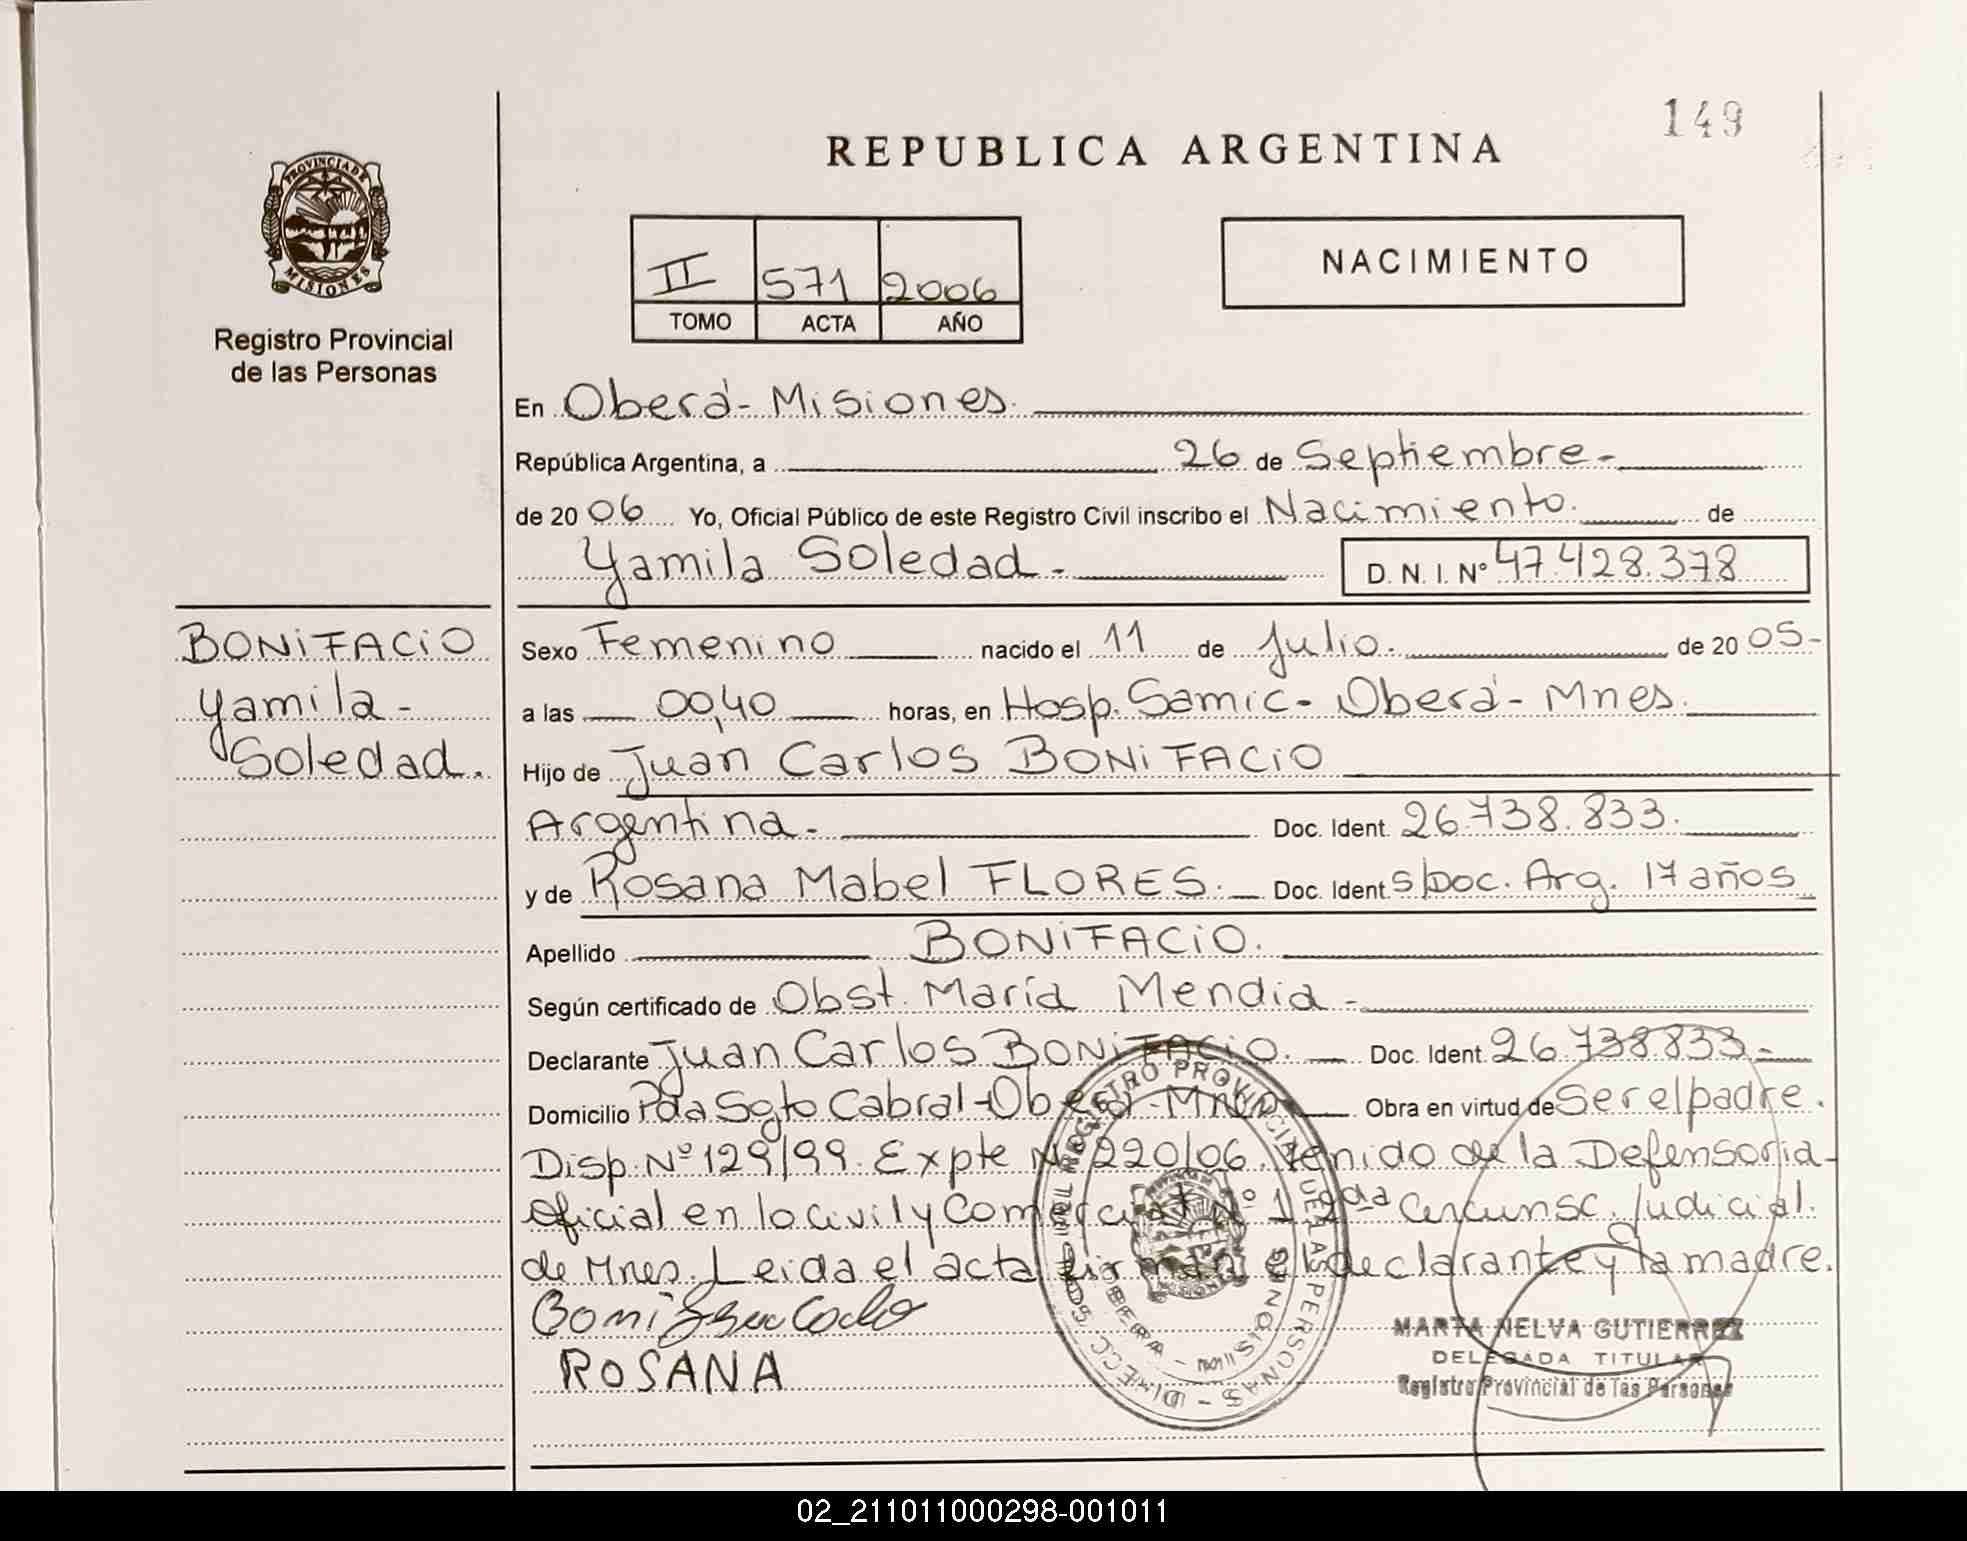 149
REPUBLICA ARGENTINA
PROVINCIA DE MISIONES
Registro Provincial
de las Personas
II 571 2006
TOMO ACTA AÑO
NACIMIENTO
En Oberá - Misiones.
República Argentina, a 26 de Septiembre -
de 20 06 Yo, Oficial Público de este Registro Civil inscribo el Nacimiento. de
Yamila Soledad - D. N. I. Nº 47.428.378
BONIFACIO
Yamila -
Soledad.
Sexo Femenino nacido el 11 de Julio. de 20 05-
a las 00,40 horas, en Hosp. Samic - Oberá - Mnes.
Hijo de Juan Carlos BONIFACIO
Argentina - Doc. Ident. 26.738.833.
y de Rosana Mabel FLORES. Doc. Ident. s/Doc. Arg. 17 años
Apellido BONIFACIO.
Según certificado de Obst. María Mendia -
Declarante Juan Carlos BONIFACIO. Doc. Ident. 26738833-
Domicilio Pda Sgto Cabral - Oberá - Mnes Obra en virtud de Ser el padre.
Disp. Nº 129/99. Expte Nº 220/06. tenido de la Defensoria
Oficial en lo civil y Comercial Nº 1 2da Circunsc. Judicial.
de Mnes. Leida el acta firman el declarante y la madre.
ROSANA
REGISTRO PROVINCIAL DE LAS PERSONAS
OBERA - MISIONES
MARTA NELVA GUTIERREZ
DELEGADA TITULAR
Registro Provincial de las Personas
02_211011000298-001011